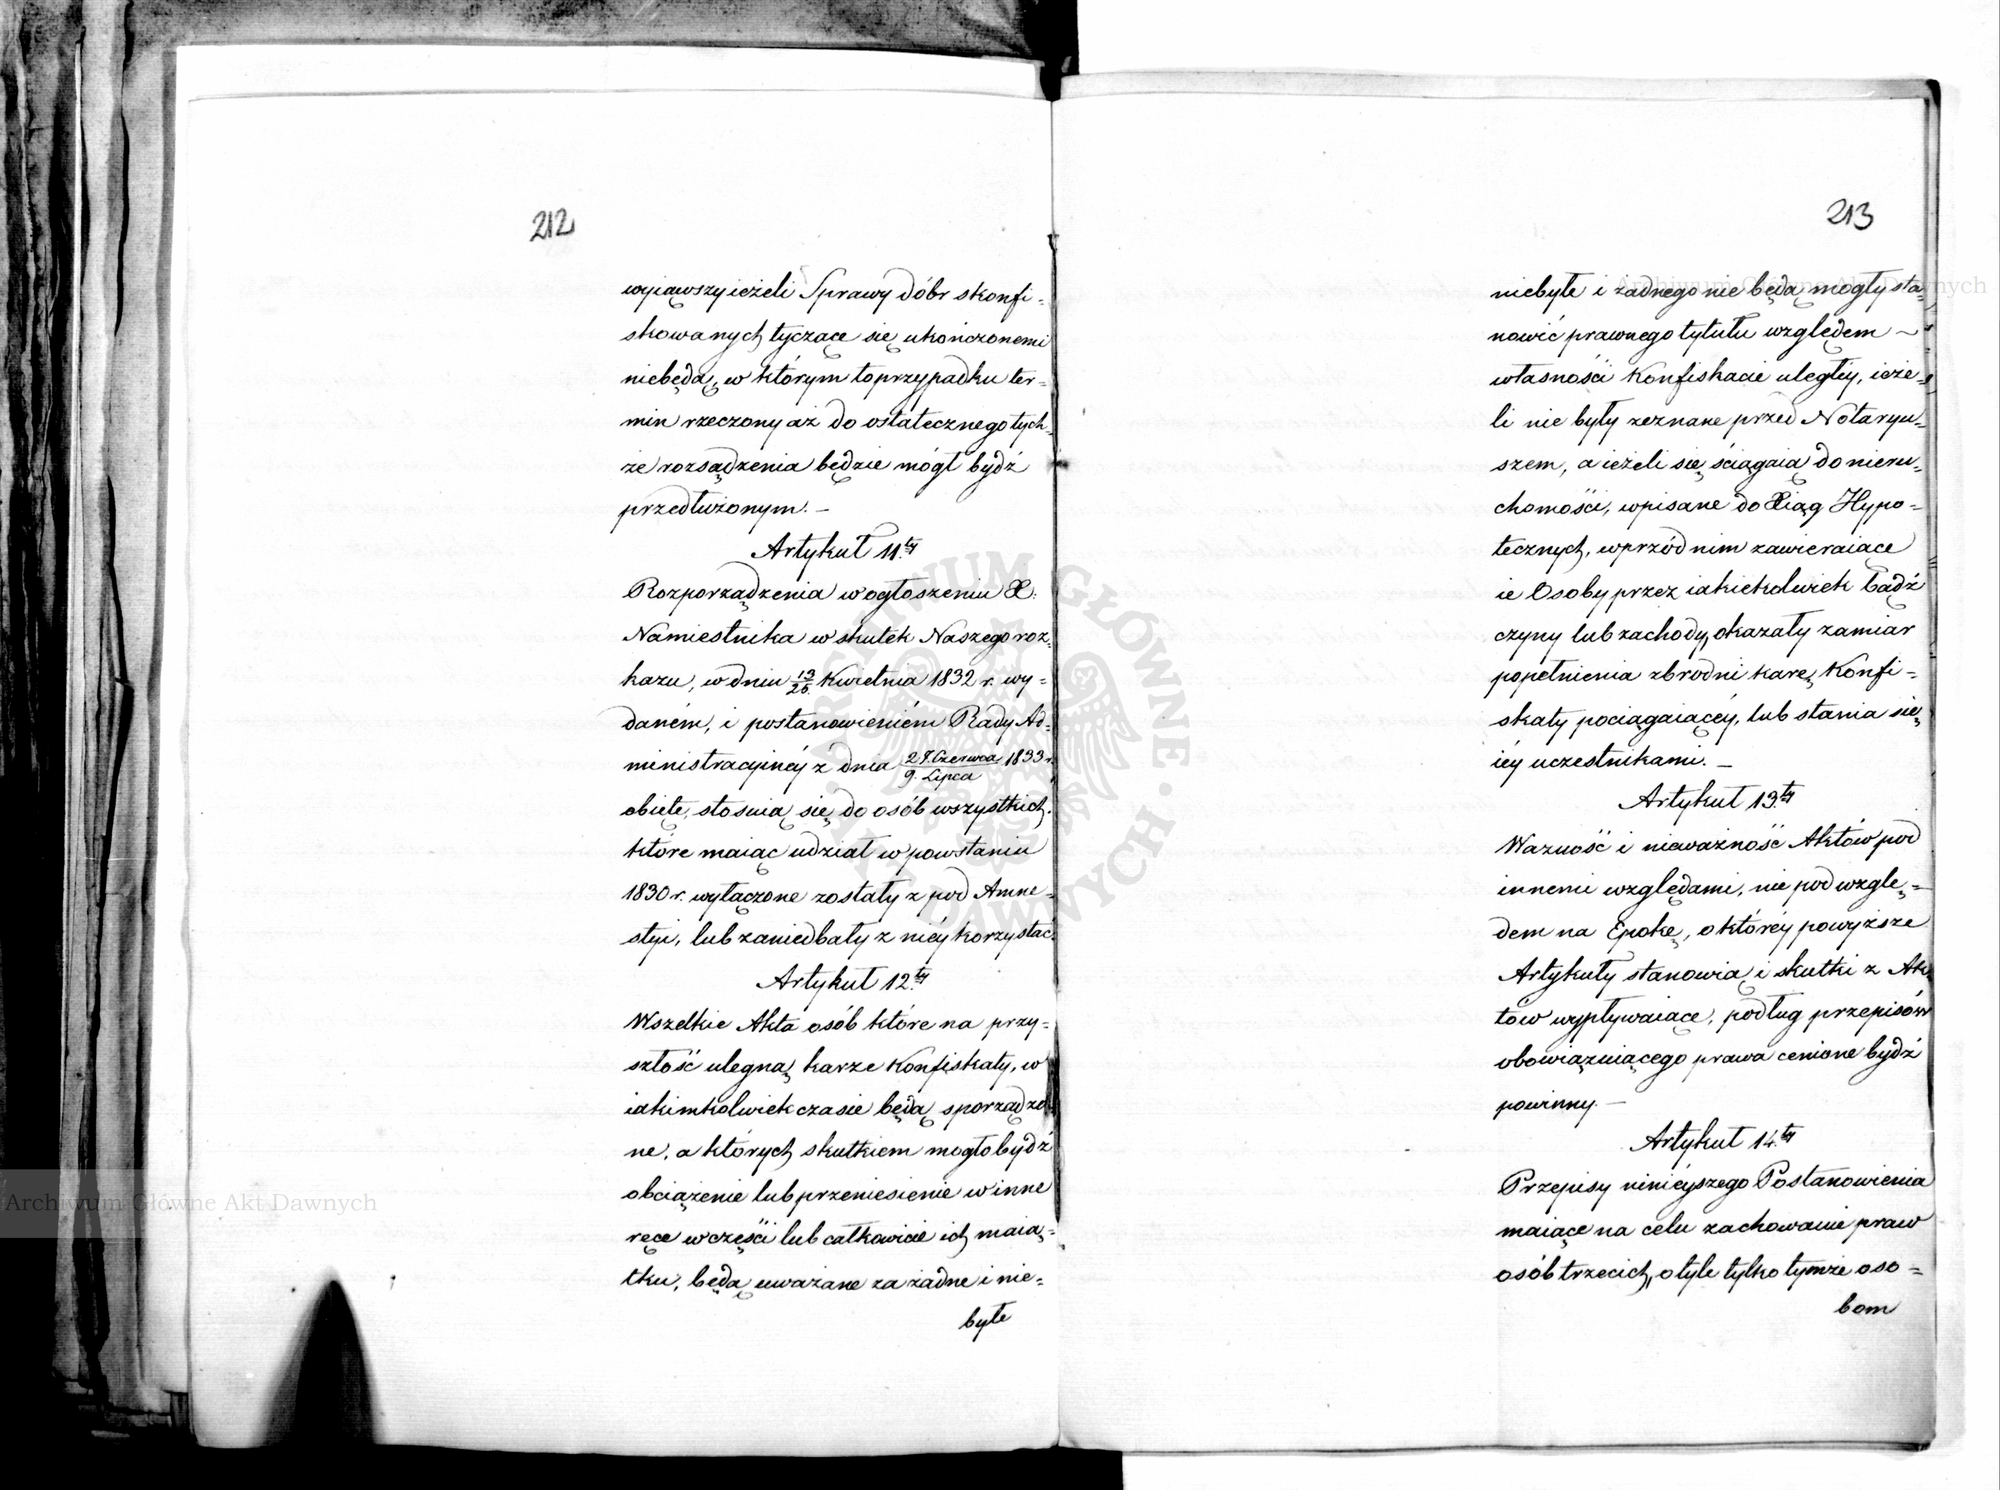 212
wyiąwszy ieżeli Sprawy dóbr skonfi=
skowanych tyczące się ukończonemi
niebędą, w którym to przypadku ter=
min rzeczony aż do ostatecznego tych=
że rozsądzenia będzie mógł bydź
przedłużonym. –
Artykuł 11.ty
Rozporządzenia w ogłoszeniu X.
Namiestnika w skutek Naszego roz=
kazu, w dniu 13/25 Kwietnia 1832 r. wy=
daném, i postanowieniém Rady Ad=
ministracyinéy z dnia 27. Czerwca/9. Lipca 1833 r.
obięte, stosuią się do osób wszystkich,
które maiąc udział w powstaniu
1830 r. wyłączone zostały z pod Amne=
styi, lub zaniedbały z niéy korzystać.
Artykuł 12.ty
Wszelkie Akta osób które na przy=
szłość ulegną karze Konfiskaty, w
iakimkolwiek czasie będą sporządzo
ne, a których skutkiem mogło bydź
obciążenie lub przeniesienie w inne
ręce w części lub całkowicie ich maią=
tku, będą uważane za żadne i nie=
byłe
213
niebyłe i żadnego nie będą mogły sta=
nowić prawnego tytułu względem –
własności Konfiskacie uległéy, ieże=
li nie były zeznane przed Notaryu=
szem, a ieżeli się ściągaią do nieru=
chomości, wpisane do Xiąg Hypo=
tecznych, wprzód nim zawieraiące
ie Osoby przez iakiekolwiek bądź
czyny lub zachody, okazały zamiar
popełnienia zbrodni karę Konfi=
skaty pociągaiącéy, lub stania się
iéy uczestnikami. –
Artykuł 13.ty
Ważność i nieważność Aktów pod
innemi względami, nie pod wzglę=
dem na Epokę, o któréy powyższe
Artykuły stanowią i skutki z Ak
tów wypływaiące, podług przepisów
obowiązuiącego prawa cenione bydź
powinny. –
Artykuł 14.ty
Przepisy ninieyszego Postanowienia
maiące na celu zachowanie praw
osób trzecich, o tyle tylko tymże oso=
bom
Archiwum Główne Akt Dawnych
Archiwum Główne Akt Dawnych
ARCHIWUM GŁÓWNE AKT DAWNYCH